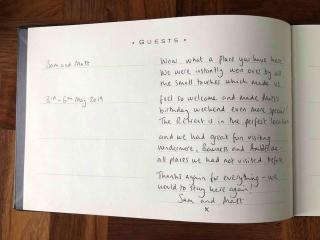 • GUESTS •
Sam and Matt
3rd - 6th May 2019
Wow, what a place you have here!
We were instantly won over by all
the small touches which made us
feel so welcome and made Matt's
birthday weekend even more special.
The Retreat is in the perfect location
and we had great fun visiting
Windermere, Bowness and Ambleside -
all places we had not visited before.
Thanks again for everything - we
would to stay here again!
Sam and Matt
x